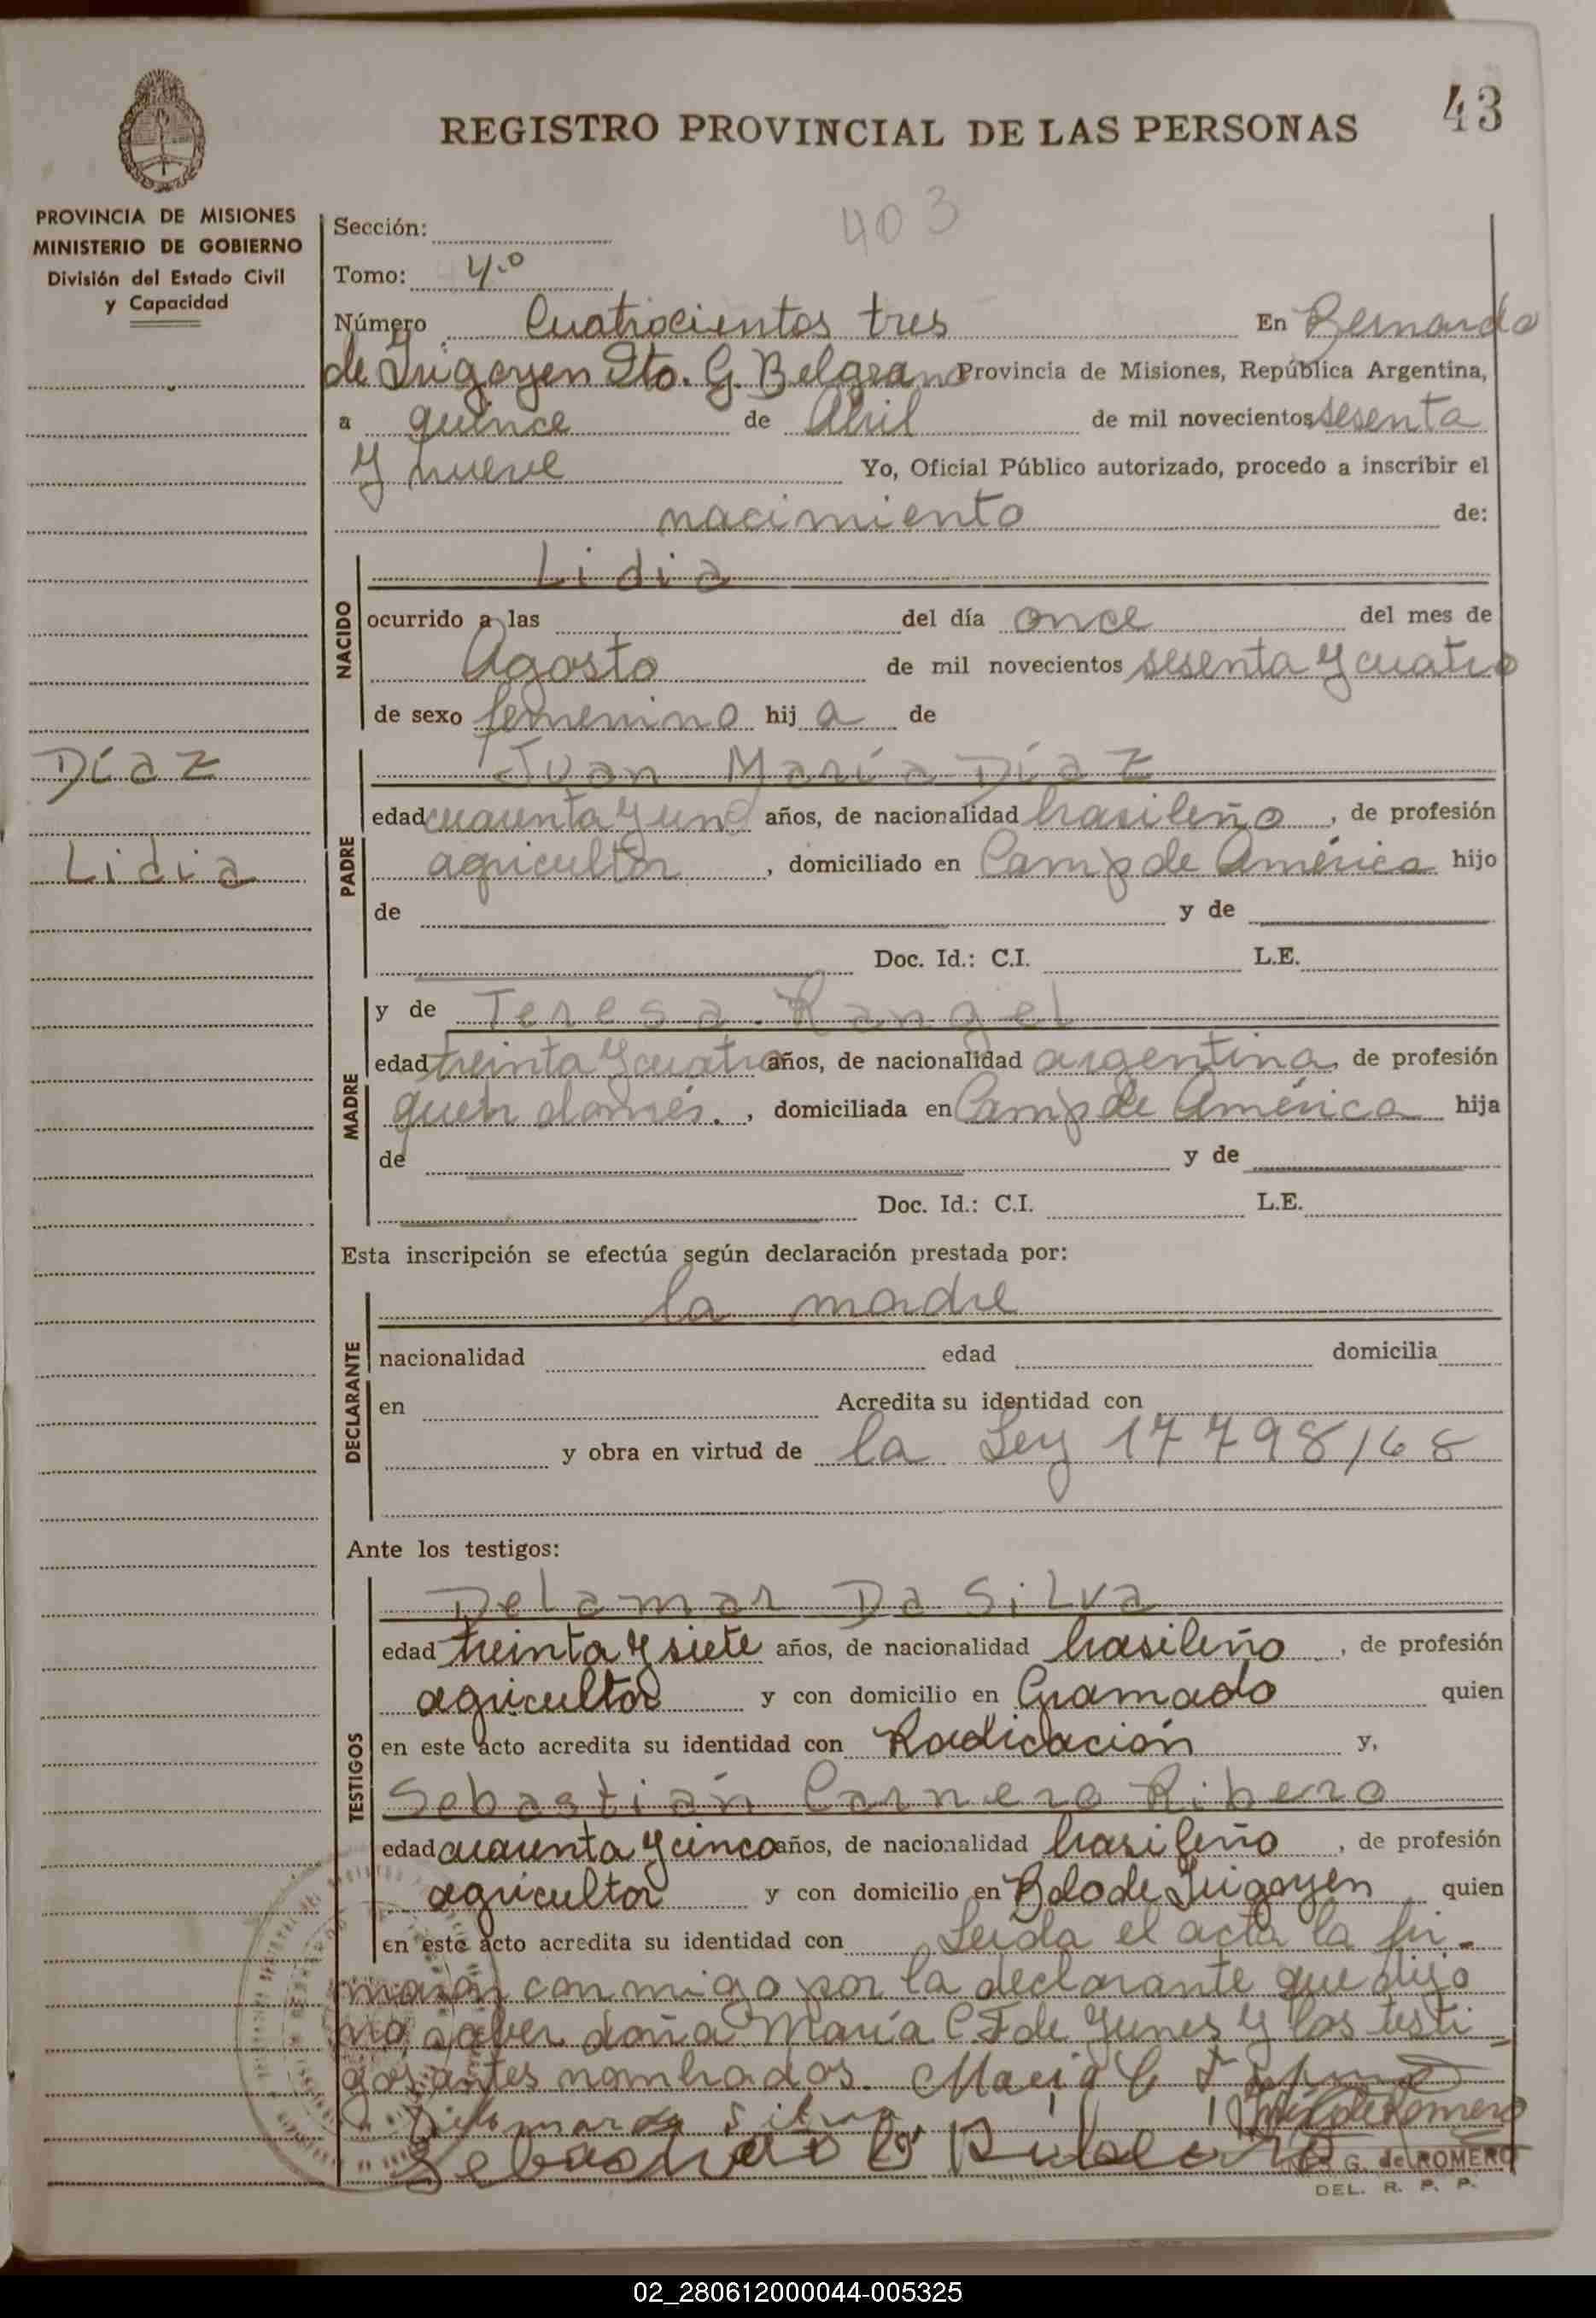 43
REGISTRO PROVINCIAL DE LAS PERSONAS
403
PROVINCIA DE MISIONES
MINISTERIO DE GOBIERNO
División del Estado Civil
y Capacidad
Sección:
Tomo: 4.º
Número Cuatrocientos tres En Bernardo
de Irigoyen Dto. G. Belgrano Provincia de Misiones, República Argentina,
a quince de Abril de mil novecientos sesenta
y nueve Yo, Oficial Público autorizado, procedo a inscribir el
nacimiento de:
NACIDO
Lidia
ocurrido a las del día once del mes de
Agosto de mil novecientos sesenta y cuatro
de sexo femenino hij a de
Díaz
Lidia
PADRE
Juan María Díaz
edad cuarenta y uno años, de nacionalidad brasileño, de profesión
agricultor, domiciliado en Camp de América hijo
de y de
Doc. Id.: C.I. L.E.
MADRE
y de Teresa Rangel
edad treinta y cuatro años, de nacionalidad argentina, de profesión
queh domés., domiciliada en Camp de América hija
de y de
Doc. Id.: C.I. L.E.
Esta inscripción se efectúa según declaración prestada por:
DECLARANTE
la madre
nacionalidad edad domicilia
en Acredita su identidad con
y obra en virtud de la Ley 17798/68
Ante los testigos:
TESTIGOS
Delamar Da Silva
edad treinta y siete años, de nacionalidad brasileño, de profesión
agricultor y con domicilio en Gramado quien
en este acto acredita su identidad con Radicación y,
Sebastián Carnero Ribero
edad cuarenta y cinco años, de nacionalidad brasileño, de profesión
agricultor y con domicilio en Bdo de Irigoyen quien
en este acto acredita su identidad con Leída el acta la fir-
maron conmigo por la declarante que dijo
no saber doña María C F de Yunes y los testi
gos antes nombrados. María C F
da Silva
de Romero
G. de ROMERO
DEL. R. P. P.
02_280612000044-005325